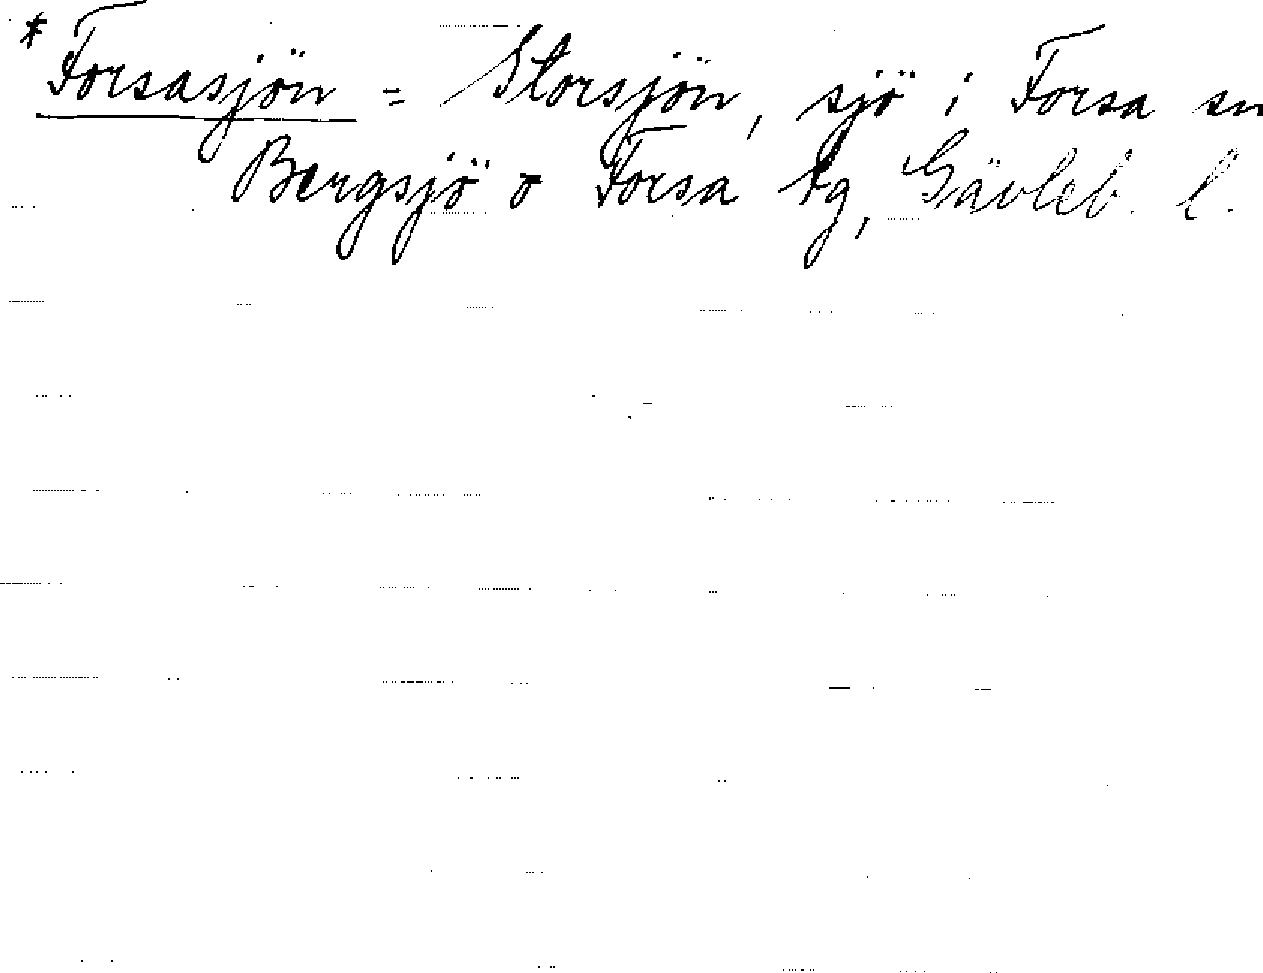 * Forsasjön = Storsjön, sjö i Forsa sn
Bergsjö o Forsa tg, Gävleb. l.